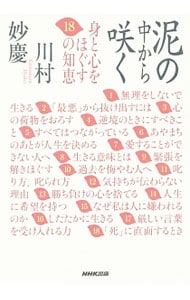 泥の中から咲く
身と心を
ほぐす
18の知恵
川村
妙慶
1 無理をしないで
生きる 2 「最悪」から抜け出すには 3 心
の荷物をおろす 4 逆境のときにすべきこ
と 5 すべてはつながっている 6 あやまち
のあとが人生を決める 7 愛することがで
きない人へ 8 生きる意味とは 9 緊張を
ほぐす 10 過去を悔やむ人へ 11 叱
り方、叱られ方 12 気持ちが伝わらない
理由 13 勝ち負けの心を手放す 14 人生
に希望を持つ 15 なぜ私は人に嫌われる
のか 16 したたかに生きる 17 厳しい言葉
を受け入れる力 18 「死」に直面するとき
NHK出版